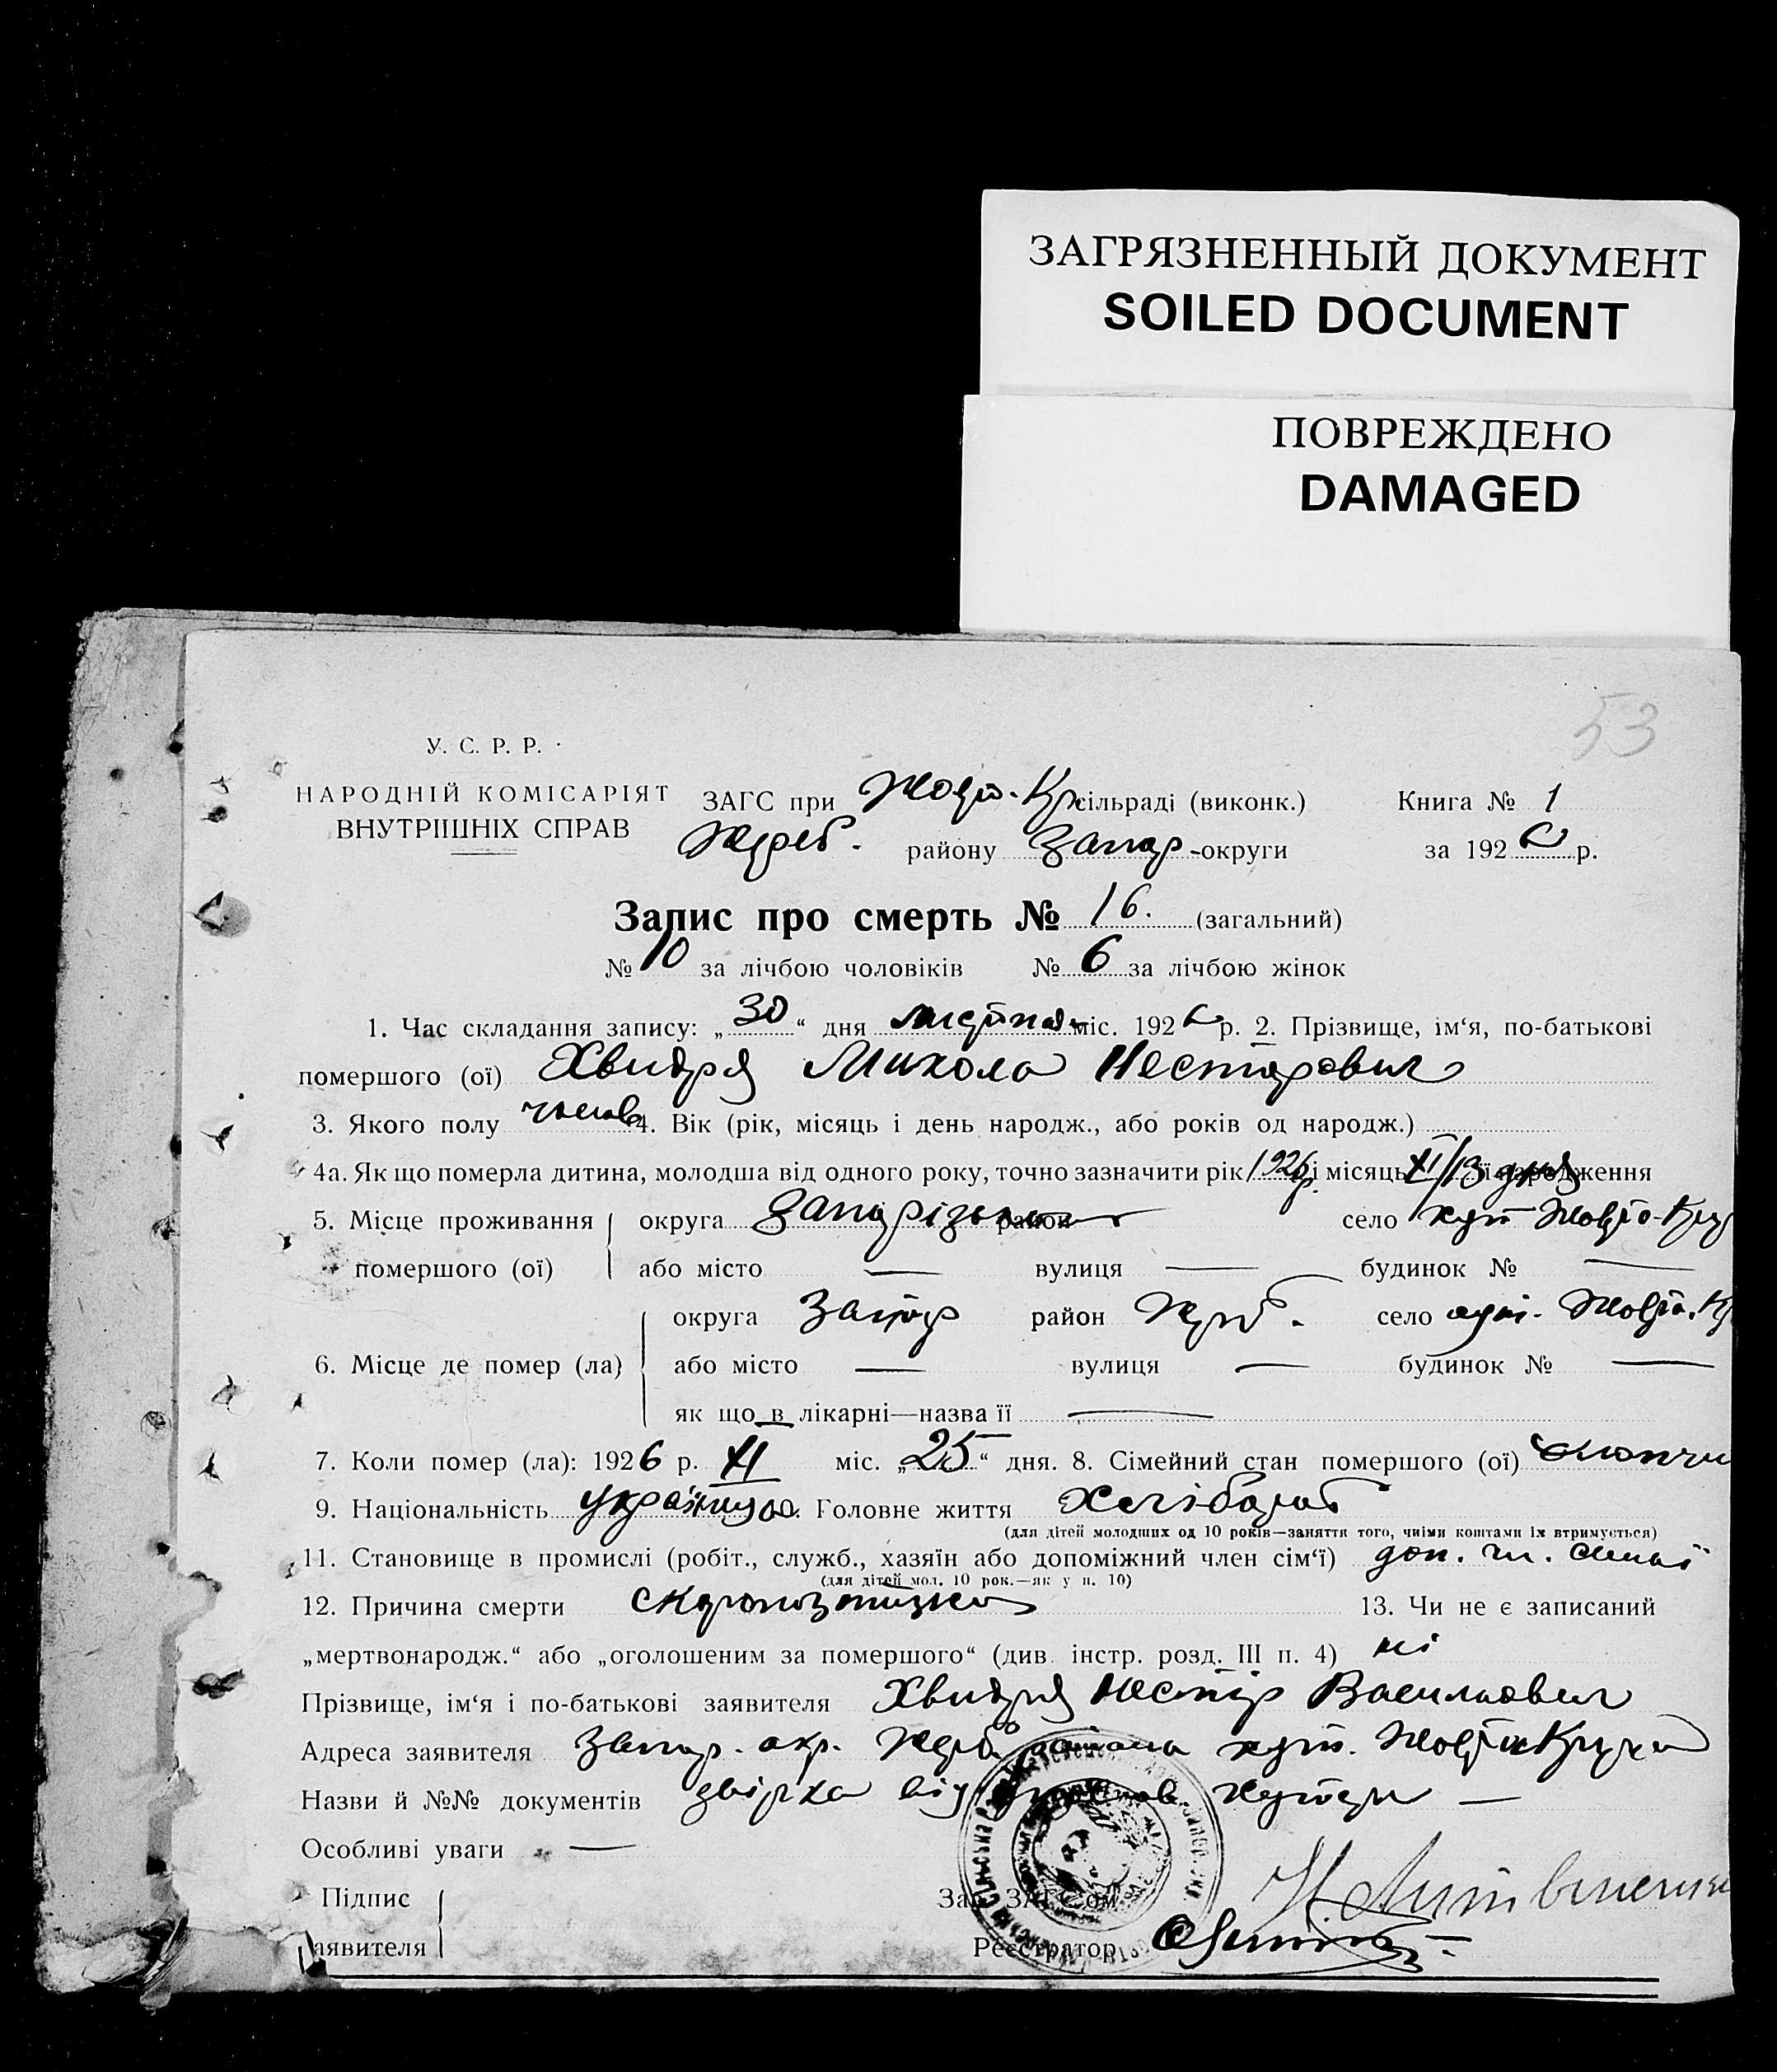 ЗАГРЯЗНЕННЫЙ ДОКУМЕНТ
SOILED DOCUMENT
ПОВРЕЖДЕНО
DAMAGED
53
У. С. Р. Р.
НАРОДНІЙ КОМІСАРІЯТ
ВНУТРІШНІХ СПРАВ
ЗАГС при Жовто-Кр. сільраді (виконк.) Книга № 1
району Запор-округи за 1926 р.
Запис про смерть № 16. (загальний)
№ 10 за лічбою чоловіків № 6 за лічбою жінок
1. Час складання запису: „30“ дня листопад міс. 1926 р. 2. Прізвище, ім‘я, по-батькові
помершого (ої) Хвидря Микола Несторович
3. Якого полу чолов 4. Вік (рік, місяць і день народж., або років од народж.)
4а. Як що померла дитина, молодша від одного року, точно зазначити рік 1926р. і місяць XI/13 дня її народження
5. Місце проживання округа Запорізька район село хут Жовто-Кру
помершого (ої) або місто — вулиця — будинок № —
округа Запор район село хут. Жовто-К
6. Місце де помер (ла) або місто — вулиця — будинок № —
як що в лікарні—назва її —
7. Коли помер (ла): 1926 р. XI міс. „25“ дня. 8. Сімейний стан помершого (ої)
9. Національність українец 10. Головне життя Хлібороб
(для дітей молодших од 10 років—заняття того, чиїми коштами їх втримується)
11. Становище в промислі (робіт., служб., хазяїн або допоміжний член сім‘ї) доп. чл. сем'ї
(для дітей мол. 10 рок.—як у п. 10)
12. Причина смерти 13. Чи не є записаний
„мертвонародж.“ або „оголошеним за помершого“ (див. інстр. розд. III п. 4) ні
Прізвище, ім‘я і по-батькові заявителя Хвидря Нестір Васильович
Адреса заявителя Запор. окр. района хут. Жовто Круча
Назви й №№ документів
Особливі уваги —
Підпис Зав. ЗАГСом
аявителя Реєстратор